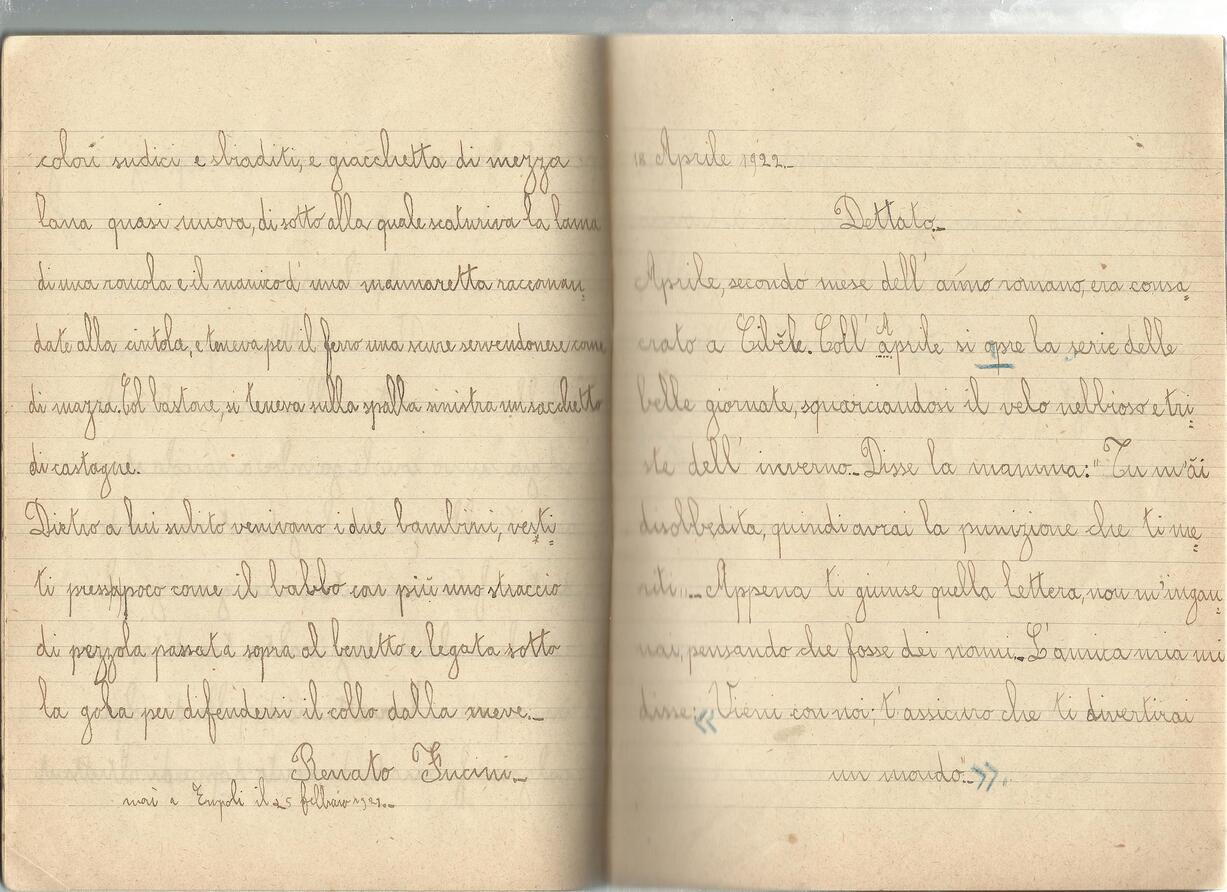 colori sudici e sbraditi, e giacchetta di mezza
lana quasi nuova, di sotto alla quale scaturiva la lama
di una roncola e il manico d'una mannaretta raccoman=
date alla cintola, e teneva per il ferro una scure servendonese come
di mazza. Col bastone, si teneva sulla spalla sinistra un sacchetto
di castagne.
Dietro a lui subito venivano i due bambini, vesti=
ti press'poco come il babbo con più uno straccio
di pezzola passata sopra al berretto e legata sotto
la gola per difendersi il collo dalla neve._
Renato Fucini._
morì a Empoli il 25 febbraio 1921._
18 Aprile 1922._
Dettato._
Aprile, secondo mese dell'anno romano, era consa=
crato a Cibĕle. Coll'Aprile si apre la serie delle
belle giornate, squarciandosi il velo nebbioso e tri=
ste dell'inverno._ Disse la mamma: "Tu m'ăi
disobbedita, quindi avrai la punizione che ti me=
riti"._ Appena ti giunse quella lettera, non m'ingan=
nai, pensando che fosse dei nonni._ L'amica mia mi
disse: «Vieni con noi; t'assicuro che ti divertirai
un mondo._».